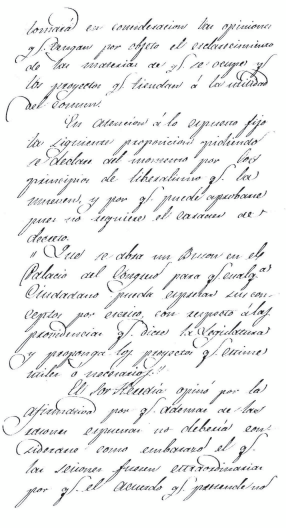 tomará en consideracion las opiniones
q.e tengan por objeto el esclarecimiento
de las materias de q.e se ocupe y
los proyectos q.e tiendan á la utilidad
del comun.
En atencion á lo espuesto fijo
la siguiente proposicion pidiendo
se declare del momento por los
principios de liberalismo q.e la
mueven, y por q.e puede aprobarse
pues no requiere el caracter de
decreto.
" Que se abra un Buson en el
Palacio del Congreso para q.e cualq.a
Ciudadano pueda espresar sus con-
ceptos por escrito, con respecto á las
providencias q.e dicte la Legislatura
y proponga los proyectos q.e estime
utiles ó necesarios."
El Sor Heredia opinó por la
afirmativa por q.e ademas de las
razones espuestas no deberia con-
siderarse como embarazo el q.e
las sesiones fuesen extraordinarias
por q.e el acuerdo q.e pretende no